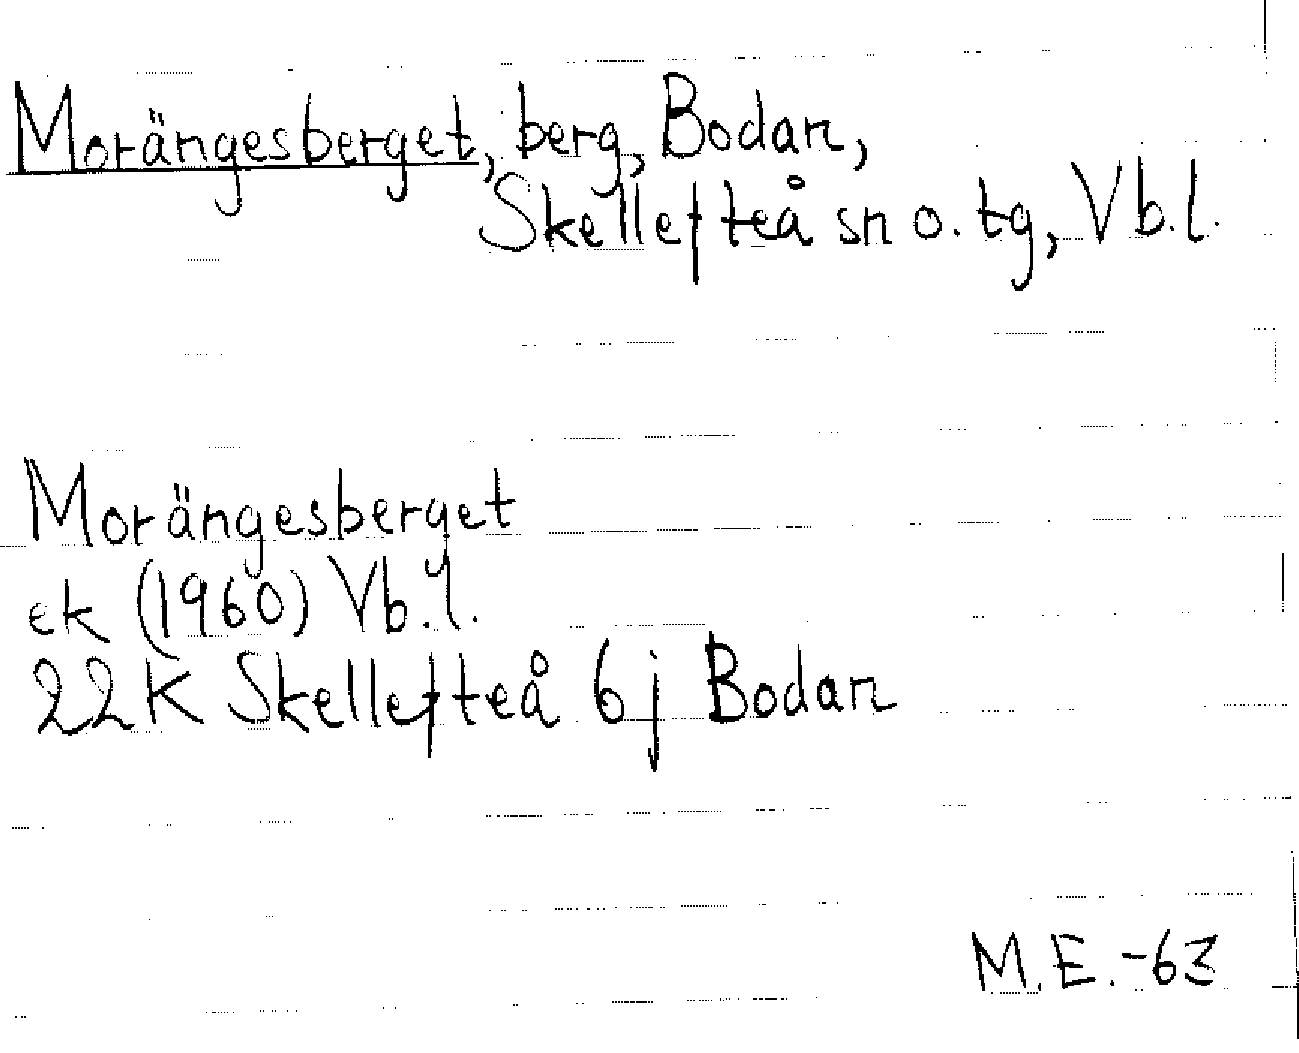 Morängesberget, berg, Bodan,
Skellefteå sn o. tg, Vb.l.
Morängesberget
ek (1960) Vb.l.
22K Skellefteå 6j Bodan
M.E.-63